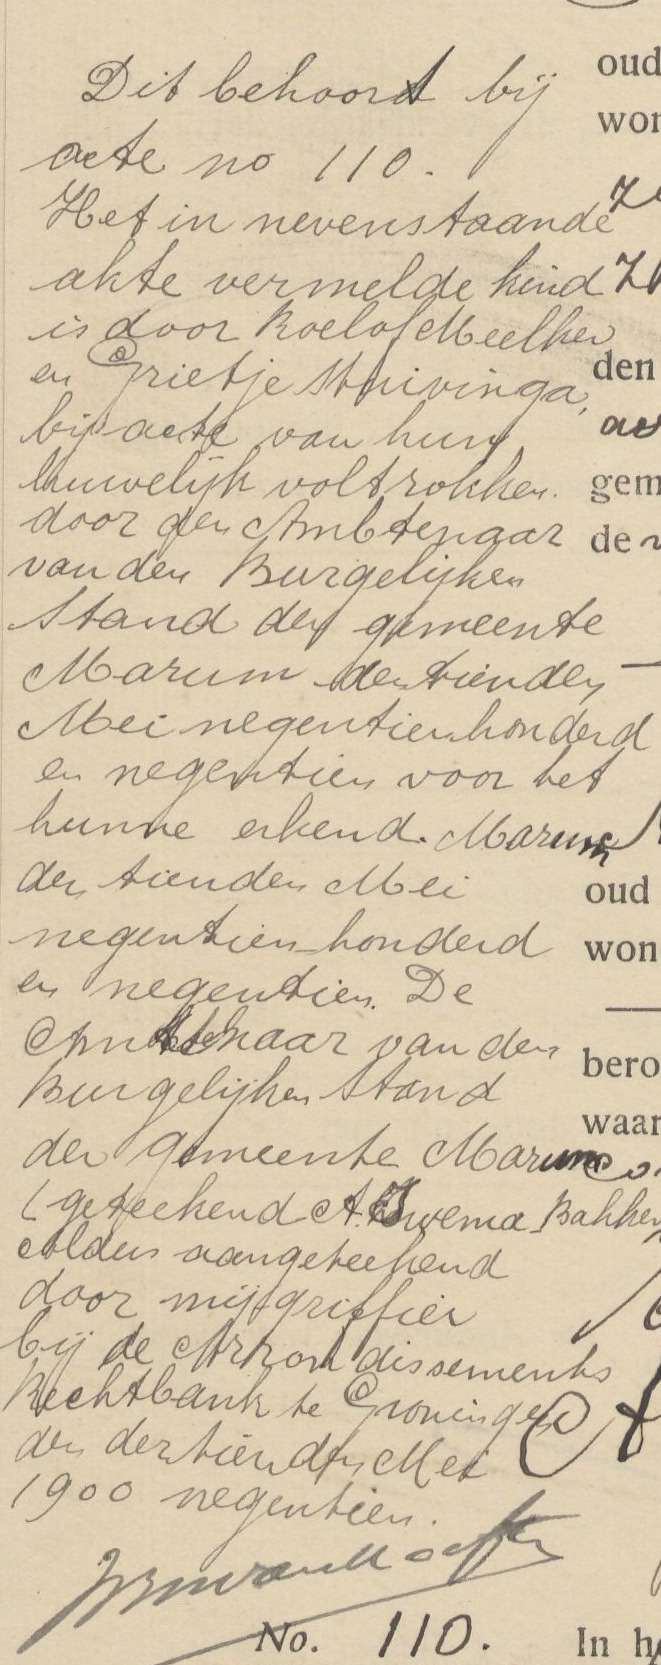 Dit behoort bij
acte no 110.
Het in nevenstaande
akte vermelde kind
is door Roelof Meelker
en Grietje Stuivinga,
bij acte van hun
huwelijk voltrokken
door den Ambtenaar
van den Burgelijken
Stand der gemeente
Marum den tienden
Mei negentienhonderd
en negentien voor het
hunne erkend. Marum
den tienden Mei
negentien honderd
en negentien. De
Ambtenaar van den
Burgelijken Stand
der gemeente Marum
(geteekend A. Bakker
Aldus aangeteekend
door mij griffier
bij de Arrondissements
Rechtbank te Groningen
den dertienden Mei
1900 negentien.
No. 110.
oud
won
den
gem
de
oud
won
bero
waar
In h